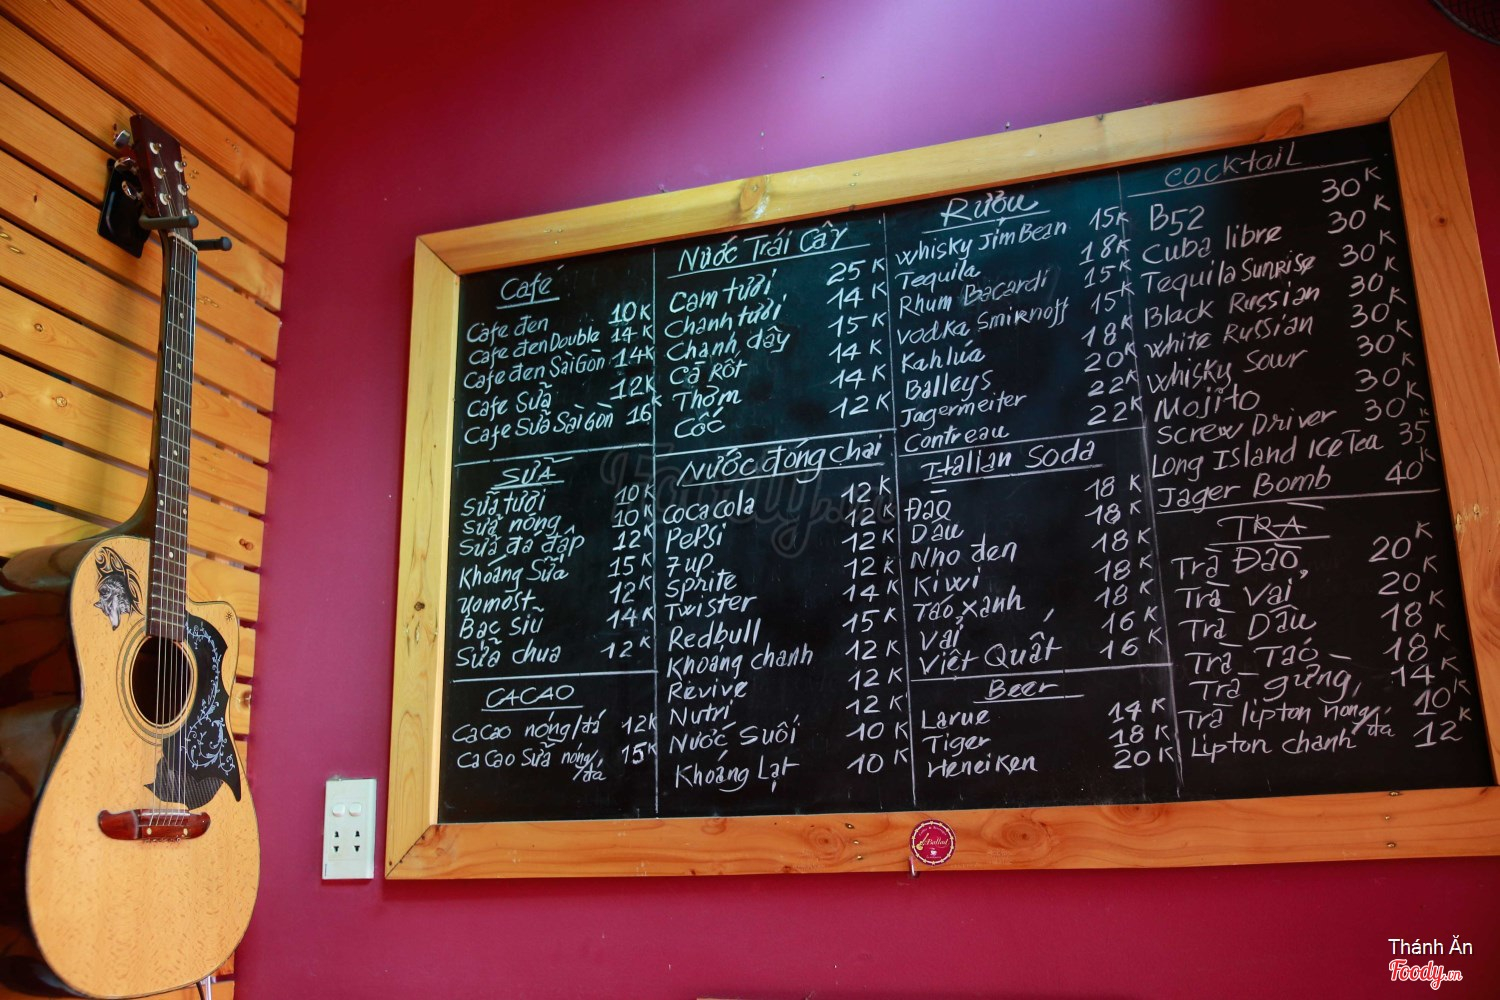 Café
Cafe đen 10K
Cafe đen Double 14K
Cafe đen SàiGòn 14K
Cafe Sữa 12K
Cafe Sữa SàiGòn 16K
SỮA
Sữa tươi 10K
Sữa nóng 10K
Sữa đá đập 12K
Khoáng Sữa 15K
Yomost 12K
Bạc Sỉu 14K
Sữa chua 12K
CACAO
Cacao nóng/đá 12K
Ca Cao Sữa nóng/đá 15K
Nước Trái Cây
Cam tươi 25K
Chanh tươi 14K
Chanh dây 15K
Cà Rốt 14K
Thơm 14K
Cóc 12K
Nước đóng chai
Coca cola 12K
Pepsi 12K
7up 12K
Sprite 12K
Twister 14K
Redbull 15K
Khoáng chanh 12K
Revive 12K
Nutri 12K
Nước Suối 10K
Khoáng Lạt 10K
Rượu
Whisky Jim Bean 15K
Tequila 18K
Rhum Bacardi 15K
Vodka Smirnoff 15K
Kahlúa 18K
Balleys 20K
Jagermeiter 22K
Contreau 22K
Italian Soda
Đào 18K
Dâu 18K
Nho đen 18K
Kiwi 18K
Táo xanh 18K
Vải 16K
Việt Quất 16K
Beer
Larue 14K
Tiger 18K
Heneiken 20K
Cocktail
B52 30K
Cuba libre 30K
Tequila Sunrise 30K
Black Russian 30K
White Russian 30K
Whisky Sour 30K
Mojito 30K
Screw Driver 30K
Long Island Ice Tea 35K
Jager Bomb 40K
TRÀ
Trà Đào 20K
Trà Vải 20K
Trà Dâu 18K
Trà Táo 18K
Trà gừng 14K
Trà lipton nóng/đá 10K
Lipton chanh 12K
Ballad
Foody.vn
Thánh Ăn
Foody.vn